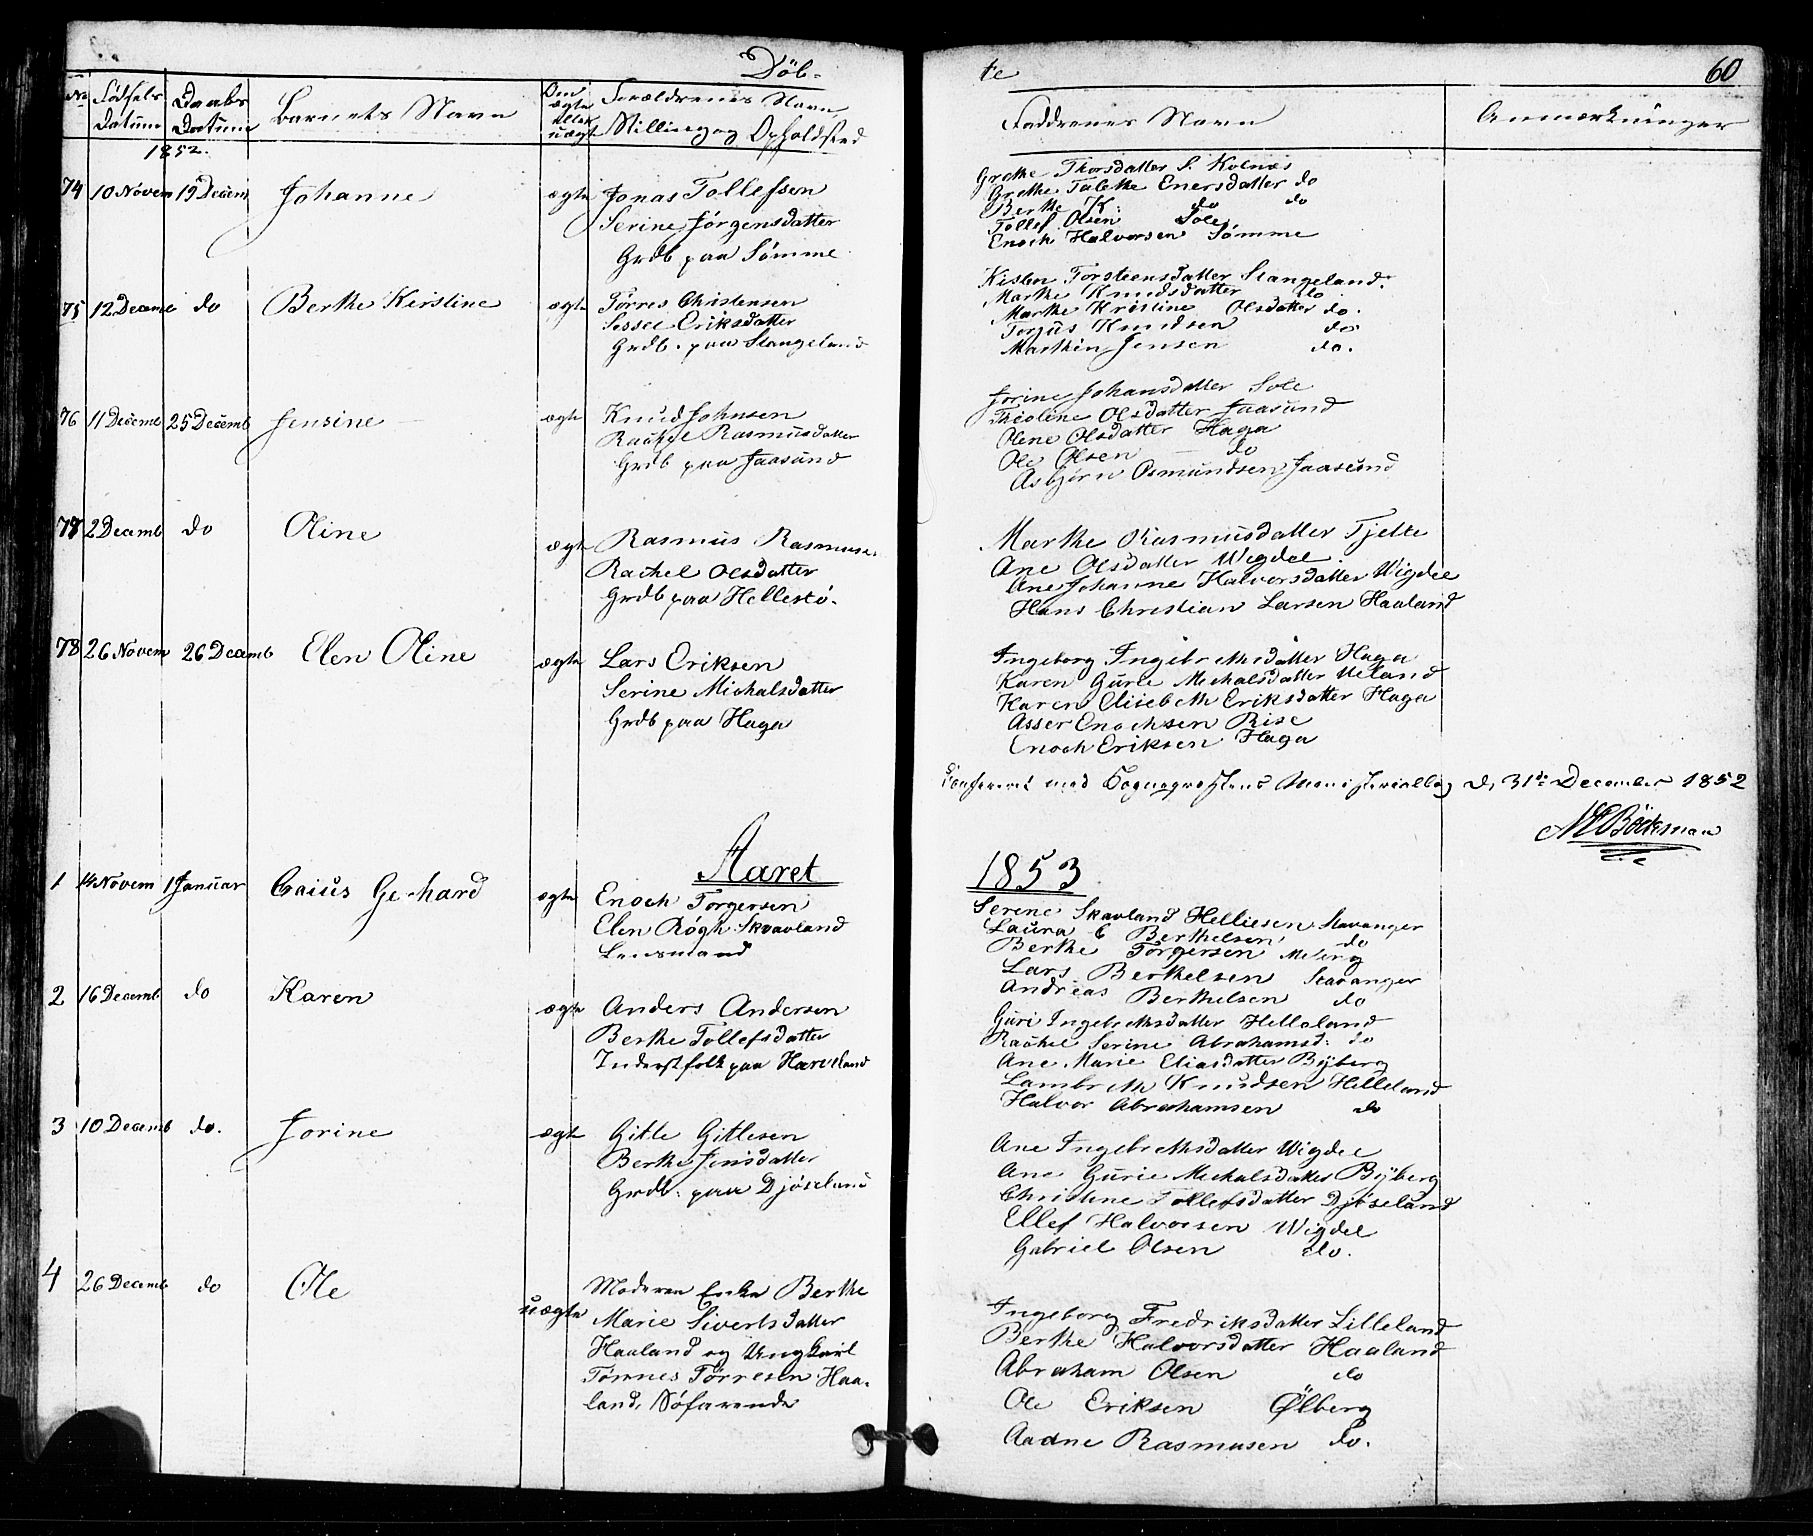 Döb-
te
60
No
Fødsels Datum
Daabs Datum
Barnets Navn
Om ægte eller uægte
Forældrenes Navn, Stilling og Opholdsted
Faddrenes Navn
Anmærkninger
1852.
74 10 Novem 19 Decem Johanne ægte Jonas Tollefsen
Serine Jörgensdatter
Grdb paa Sömme
Grethe Thorsdatter S. Kolnæs
Grethe Taletke Enersdatter do
Berthe K: do do
Tollef Olsen Sole
Enoch Halvorsen Sömme
75 12 Decemb do Berthe Kirstine ægte Törres Christensen
Sissel Eriksdatter
Grdb. paa Stangeland
Kisten Torstiensdatter Stangeland.
Marthe Knudsdatter do
Marthe Kristine Olsdatter do.
Torjus Knudsen do
Marthin Jensen do.
76 11 Decemb 25 Decemb Jensine ægte Knud Johnsen
Raakel Rasmusdatter
Grdb paa Jaasund
Jorine Johansdatter Sole
Thioline Olsdatter Jaasund
Olene Olsdatter Haga
Ole Olsen do
Asbjørn Osmundsen Jaasund
77 2 Decemb do Oline ægte Rasmus Rasmusen
Rachel Olsdatter
Grdb paa Hellestö.
Marthe Rasmusdatter Tjelte
Ane Olsdatter Wigdel.
Ane Johanne Halvorsdatter Wigdel
Hans Christian Larsen Haaland
78 26 Novem 26 Decemb Elen Oline ægte Lars Eriksen
Serine Michalsdatter
Grdb paa Haga
Ingeborg Ingebrethsdatter Haga
Karen Gurie Michalsdatter Meland
Karen Elisebeth Eriksdatter Haga
Asser Enochsen Rise
Enoch Eriksen Haga
Confereret med Sogneprestens Ministerialbog d. 31te December 1852
Böckman
Aaret 1853
1 14 Novem 1 Januar Caius Gerhard ægte Enoch Torgersen
Elen Rögh Skavland
Lensmand
Serene Skavland Helliesen Stavanger
Laura C Berthelsen do
Berthe Torgersen Meling
Lars Berthelsen Stavanger
Andreas Berthelsen do
2 16 Decemb do Karen ægte Anders Andersen
Berthe Tollefsdatter
Inderstfolk paa Harreland
Guri Ingebrethsdatter Helleland
Raakel Serine Abrahamsd: do
Ane Marie Eliasdatter Byberg
Lambreth Knudsen Helleland
Halvor Abrahamsen do
3 10 Decemb do. Jorine ægte Gitle Gitlesen
Berthe Jensdatter
Grdb: paa Djöseland
Ane Ingebrethsdatter Wigdel
Ane Gurie Michalsdatter Byberg
Christine Tollefsdatter Djöseland
Ellef Halvorsen Wigdel
Gabriel Olsen do.
4 26 Decemb do Ole uægte Moderen Enke Berthe
Marie Sivertsdatter
Haaland og Ungkarl
Tönnes Törresen Haa-
land, Söfarende
Ingeborg Fredriksdatter Lilleland
Berthe Halvorsdatter Haaland
Abraham Olsen do
Ole Eriksen Ölberg
Aadne Rasmusen do.